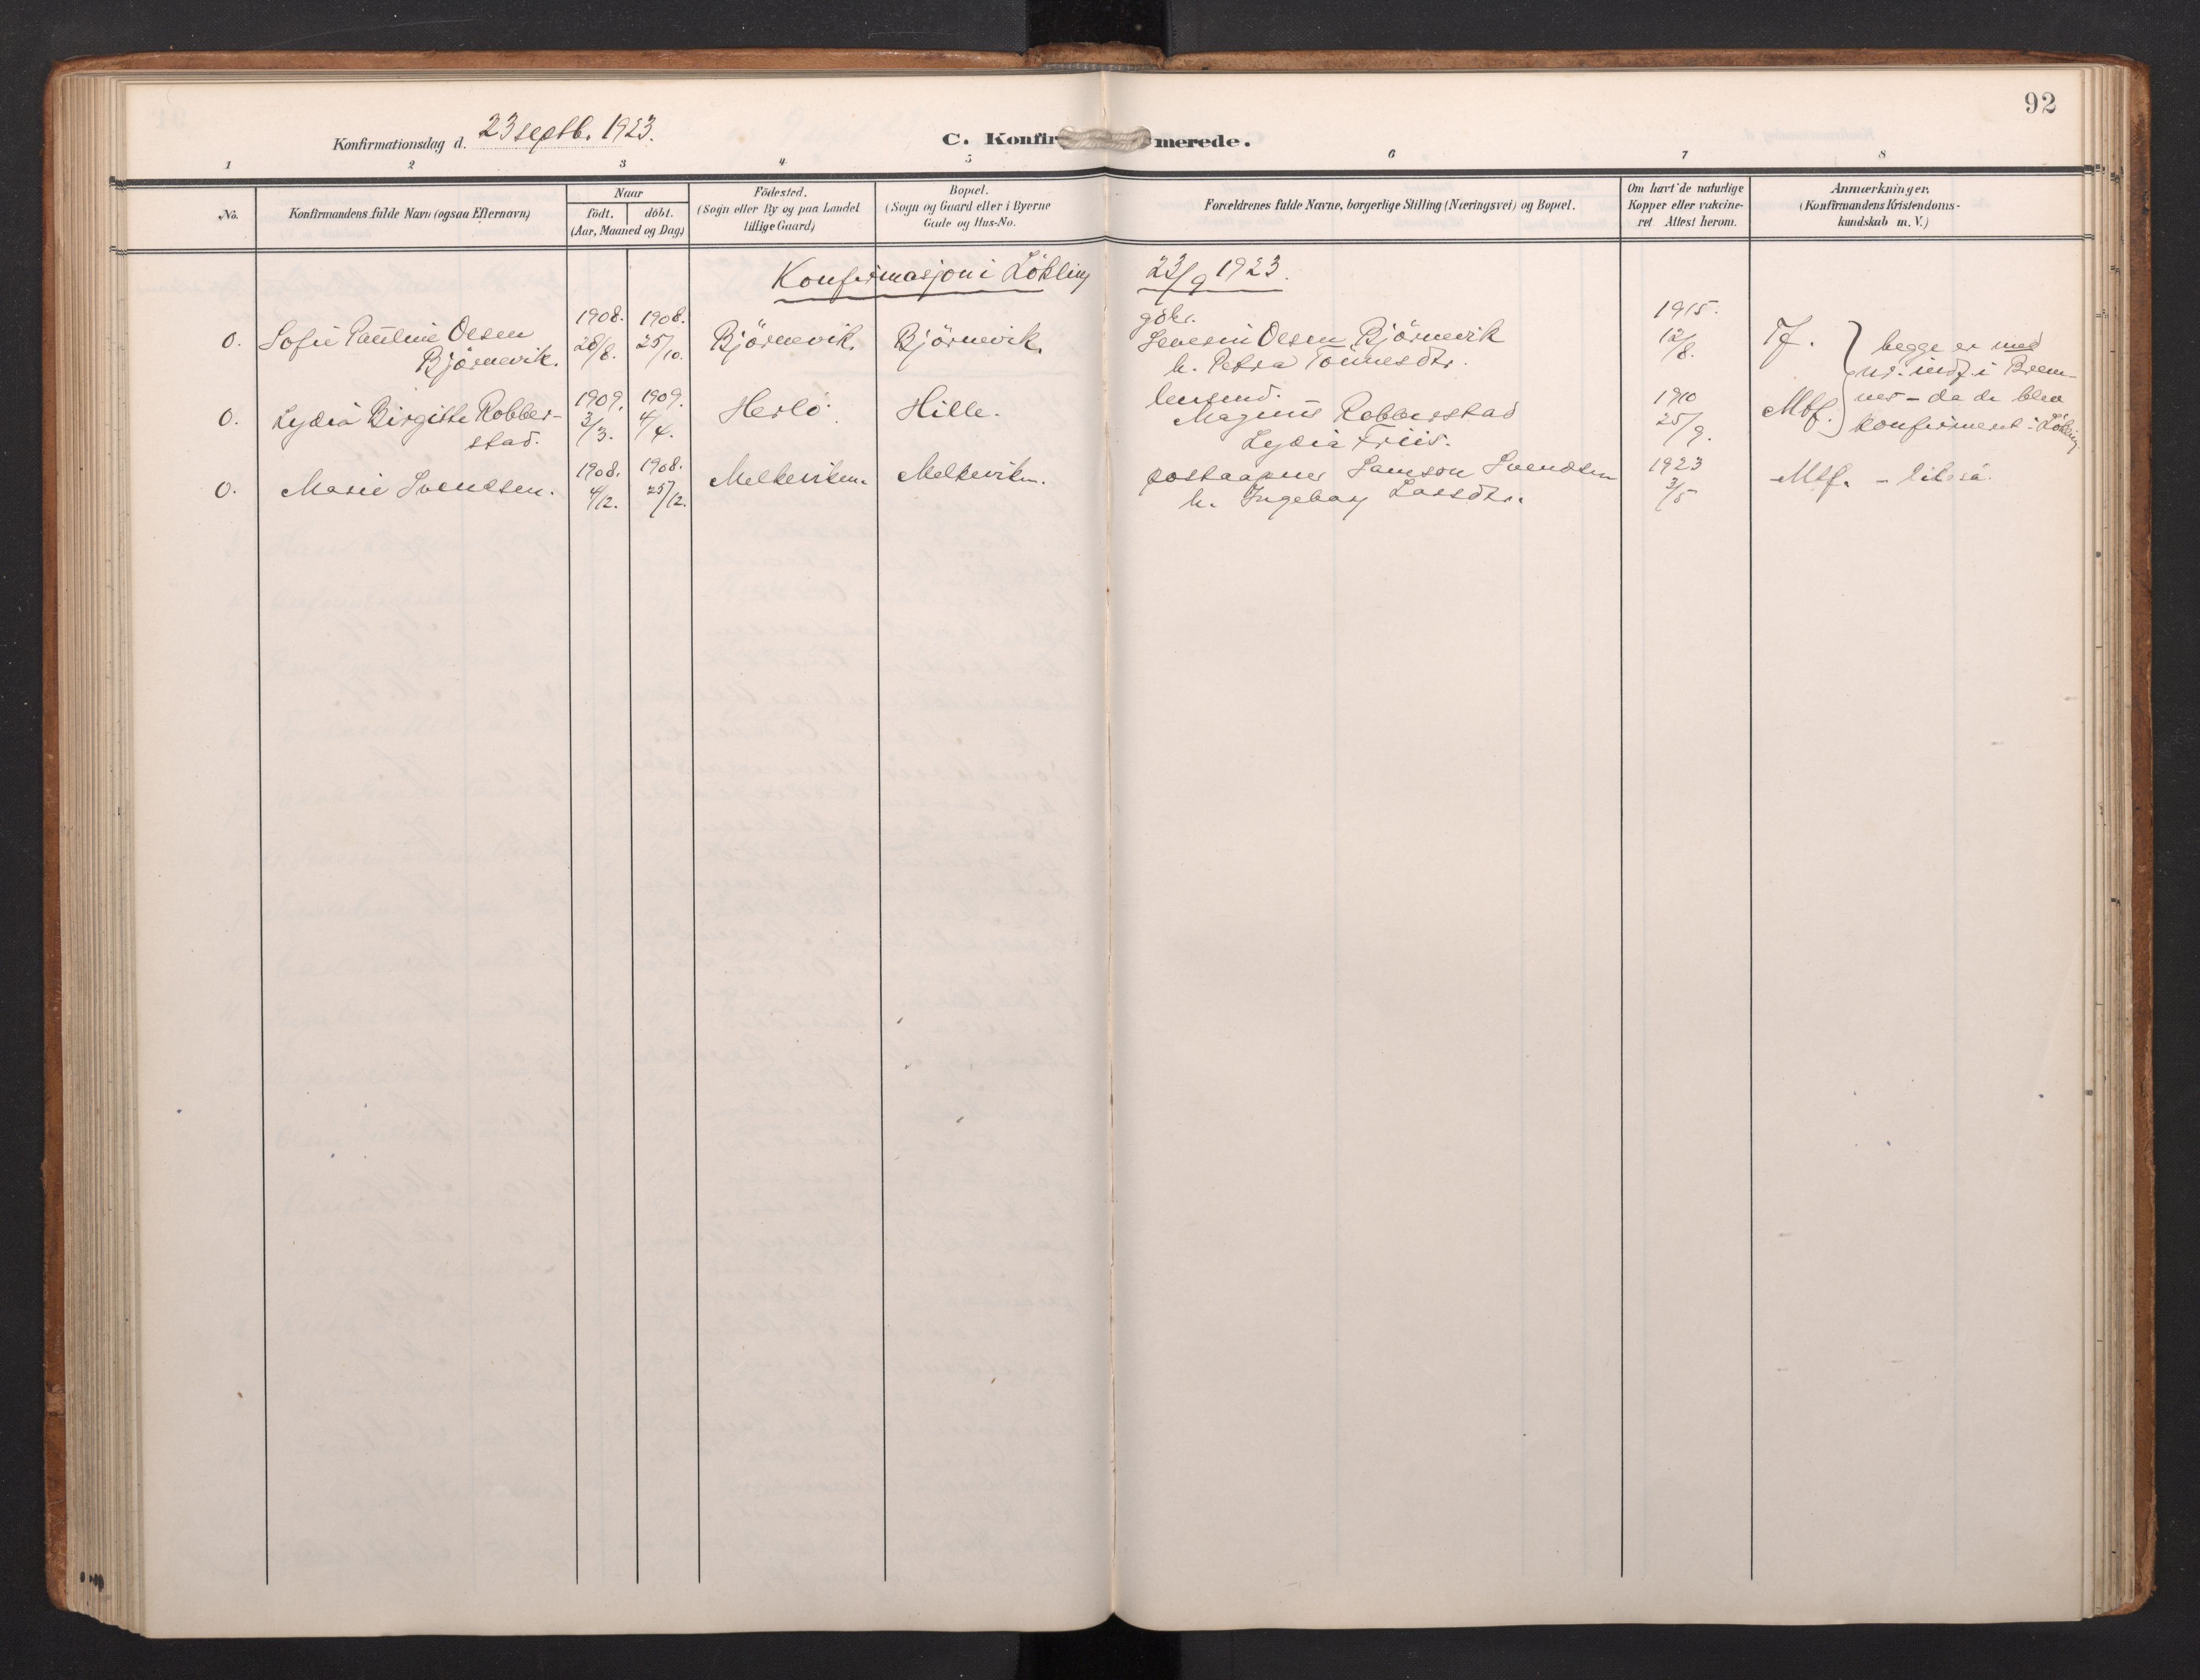 92
Konfirmationsdag d. 23 septb. 1923.
C. Konfirmerede.
1 2 3 4 5 6 7 8
No.
Konfirmandens fulde Navn (ogsaa Efternavn)
Naar
født. døbt.
(Aar, Maaned og Dag)
Födested.
(Sogn eller By og paa Landet
tillige Gaard)
Bopæl.
(Sogn og Gaard eller i Byerne
Gade og Hus-No.
Forældrenes fulde Navne, borgerlige Stilling (Næringsvei) og Bopæl.
Om havt de naturlige
Kopper eller vakcine-
ret. Attest herom.
Anmærkninger.
(Konfirmandens Kristendoms-
kundskab m. V.)
Konfirmasjon i Lökling 23/9 1923.
0. Sofie Pauline Olsen
Björnevik.
1908. 28/8.
1908. 25/10.
Björnevik.
Björnevik.
gbkr.
Severin Olsen Björnevik
h. Petra Tönnesdtr.
1915.
12/8.
Tf.
0. Lydia Birgitte Robber-
stad.
1909. 3/3.
1909. 4/4.
Herlö.
Hille.
lensmd.
Magnus Robberstad
Lydia Friis.
1910
25/9.
Mtf.
begge er med
nr. indf. i Brem-
nes - da de blev
konfirmert i Lökling
0. Marie Svendsen.
1908. 4/12.
1908. 25/12.
Melkeviken.
Melkeviken.
postaapner Samson Svendsen
h. Ingeborg Larsdtr.
1923
3/5
Mtf. -